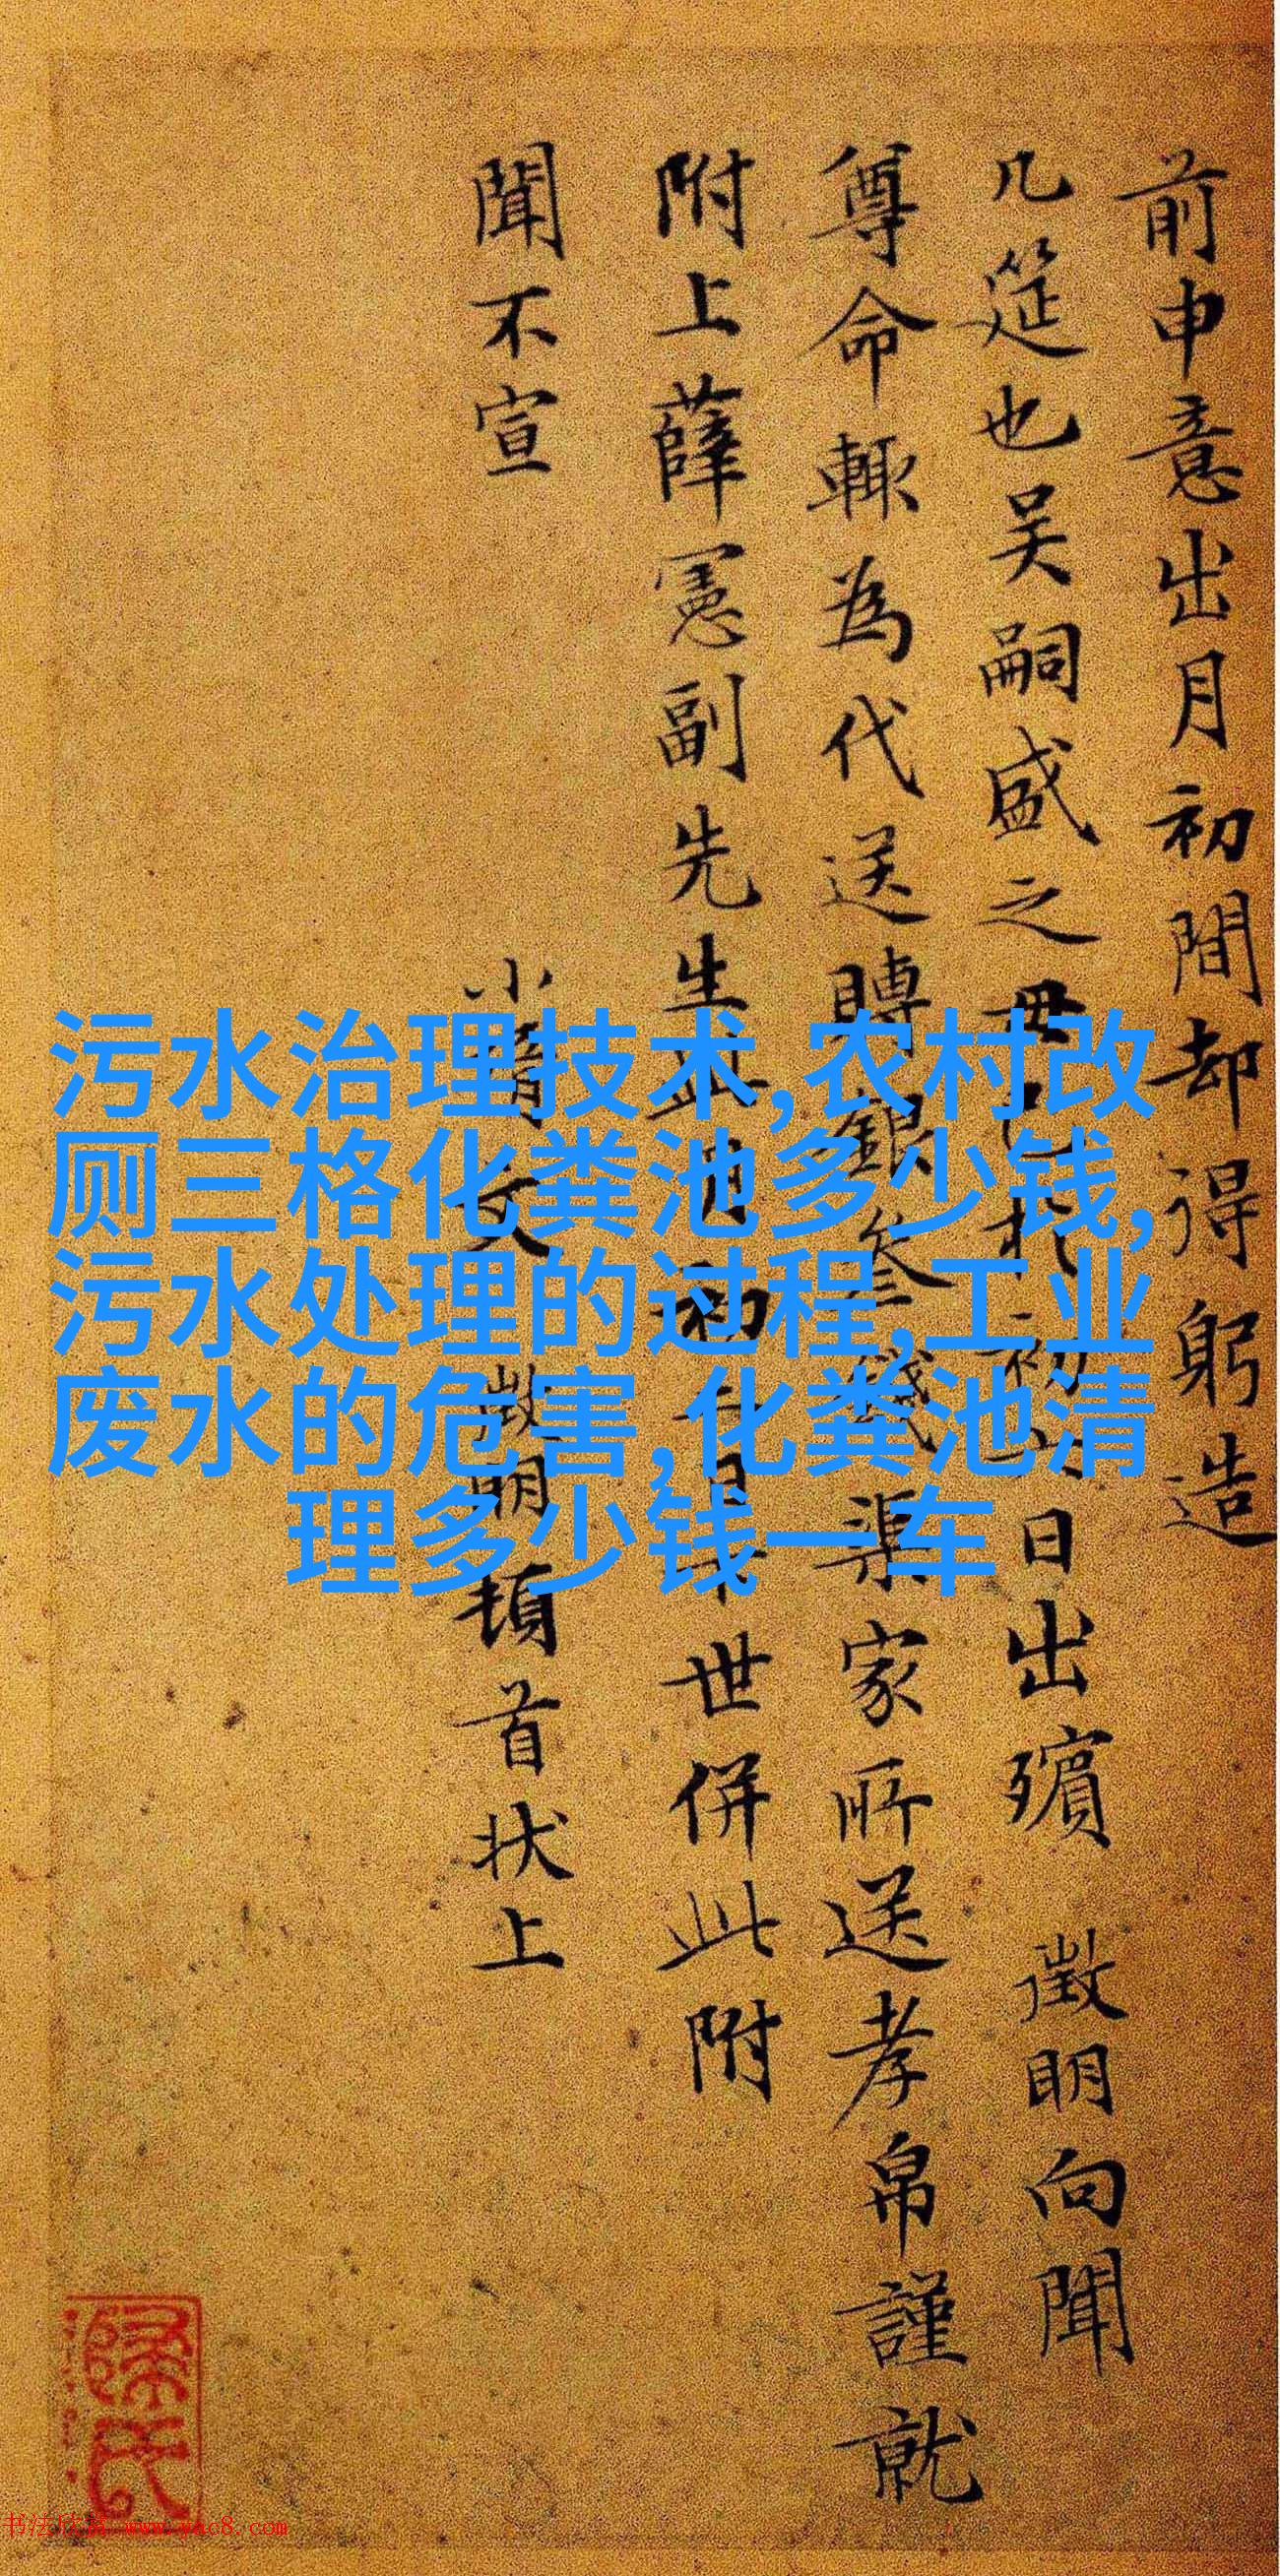 前申意出月初間却得躬造
几筵也吴嗣盛之毋 初 日出殯 徵明向聞
尊命輒為代送賻銀叁錢渠家所送孝帛謹就
附上薛憲副先生 初 世併此附
聞不宣
小 文徵明頓首状上
污水治理技术,农村改
厕三格化粪池多少钱,
污水处理的过程,工业
废水的危害,化粪池清
理多少钱一车
书法欣赏 www.yac8.com